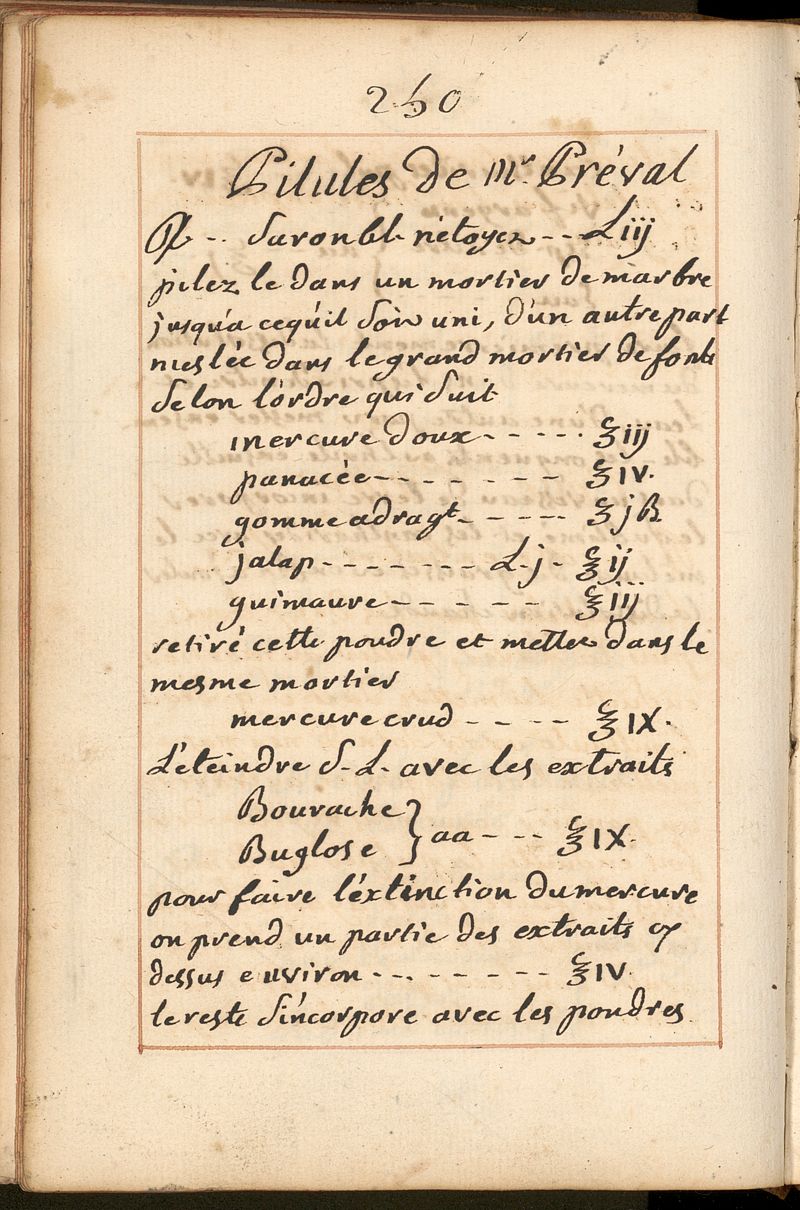 260
Pilules de Mr. Préval
℞ -- Savon bl. nétoyez -- L iij
pilez le dans un mortier de marbre
jusqu'a cequ'il soit uni, d'un autre part
meslée dans le grand mortier de fonte
selon l'ordre qui suit
mercure doux - - - - - ℥ iij
panacée - - - - - - - ℥ IV.
gomme adragt. - - - - - ℥ j ß
jalap - - - - - - - L. j - ℥ ij
guimauve - - - - - ℥ iij
retiré cette poudre et mettez dans le
mesme mortier
mercure crud - - - - ℥ IX.
L'éteindre S. L. avec les extraits
Bourache
Buglose } aa - - - ℥ IX.
pour faire l'éxtinction du mercure
on prend un partie des extraits cy
dessus environ - - - - - - - ℥ IV.
le reste s'incorpore avec les poudres